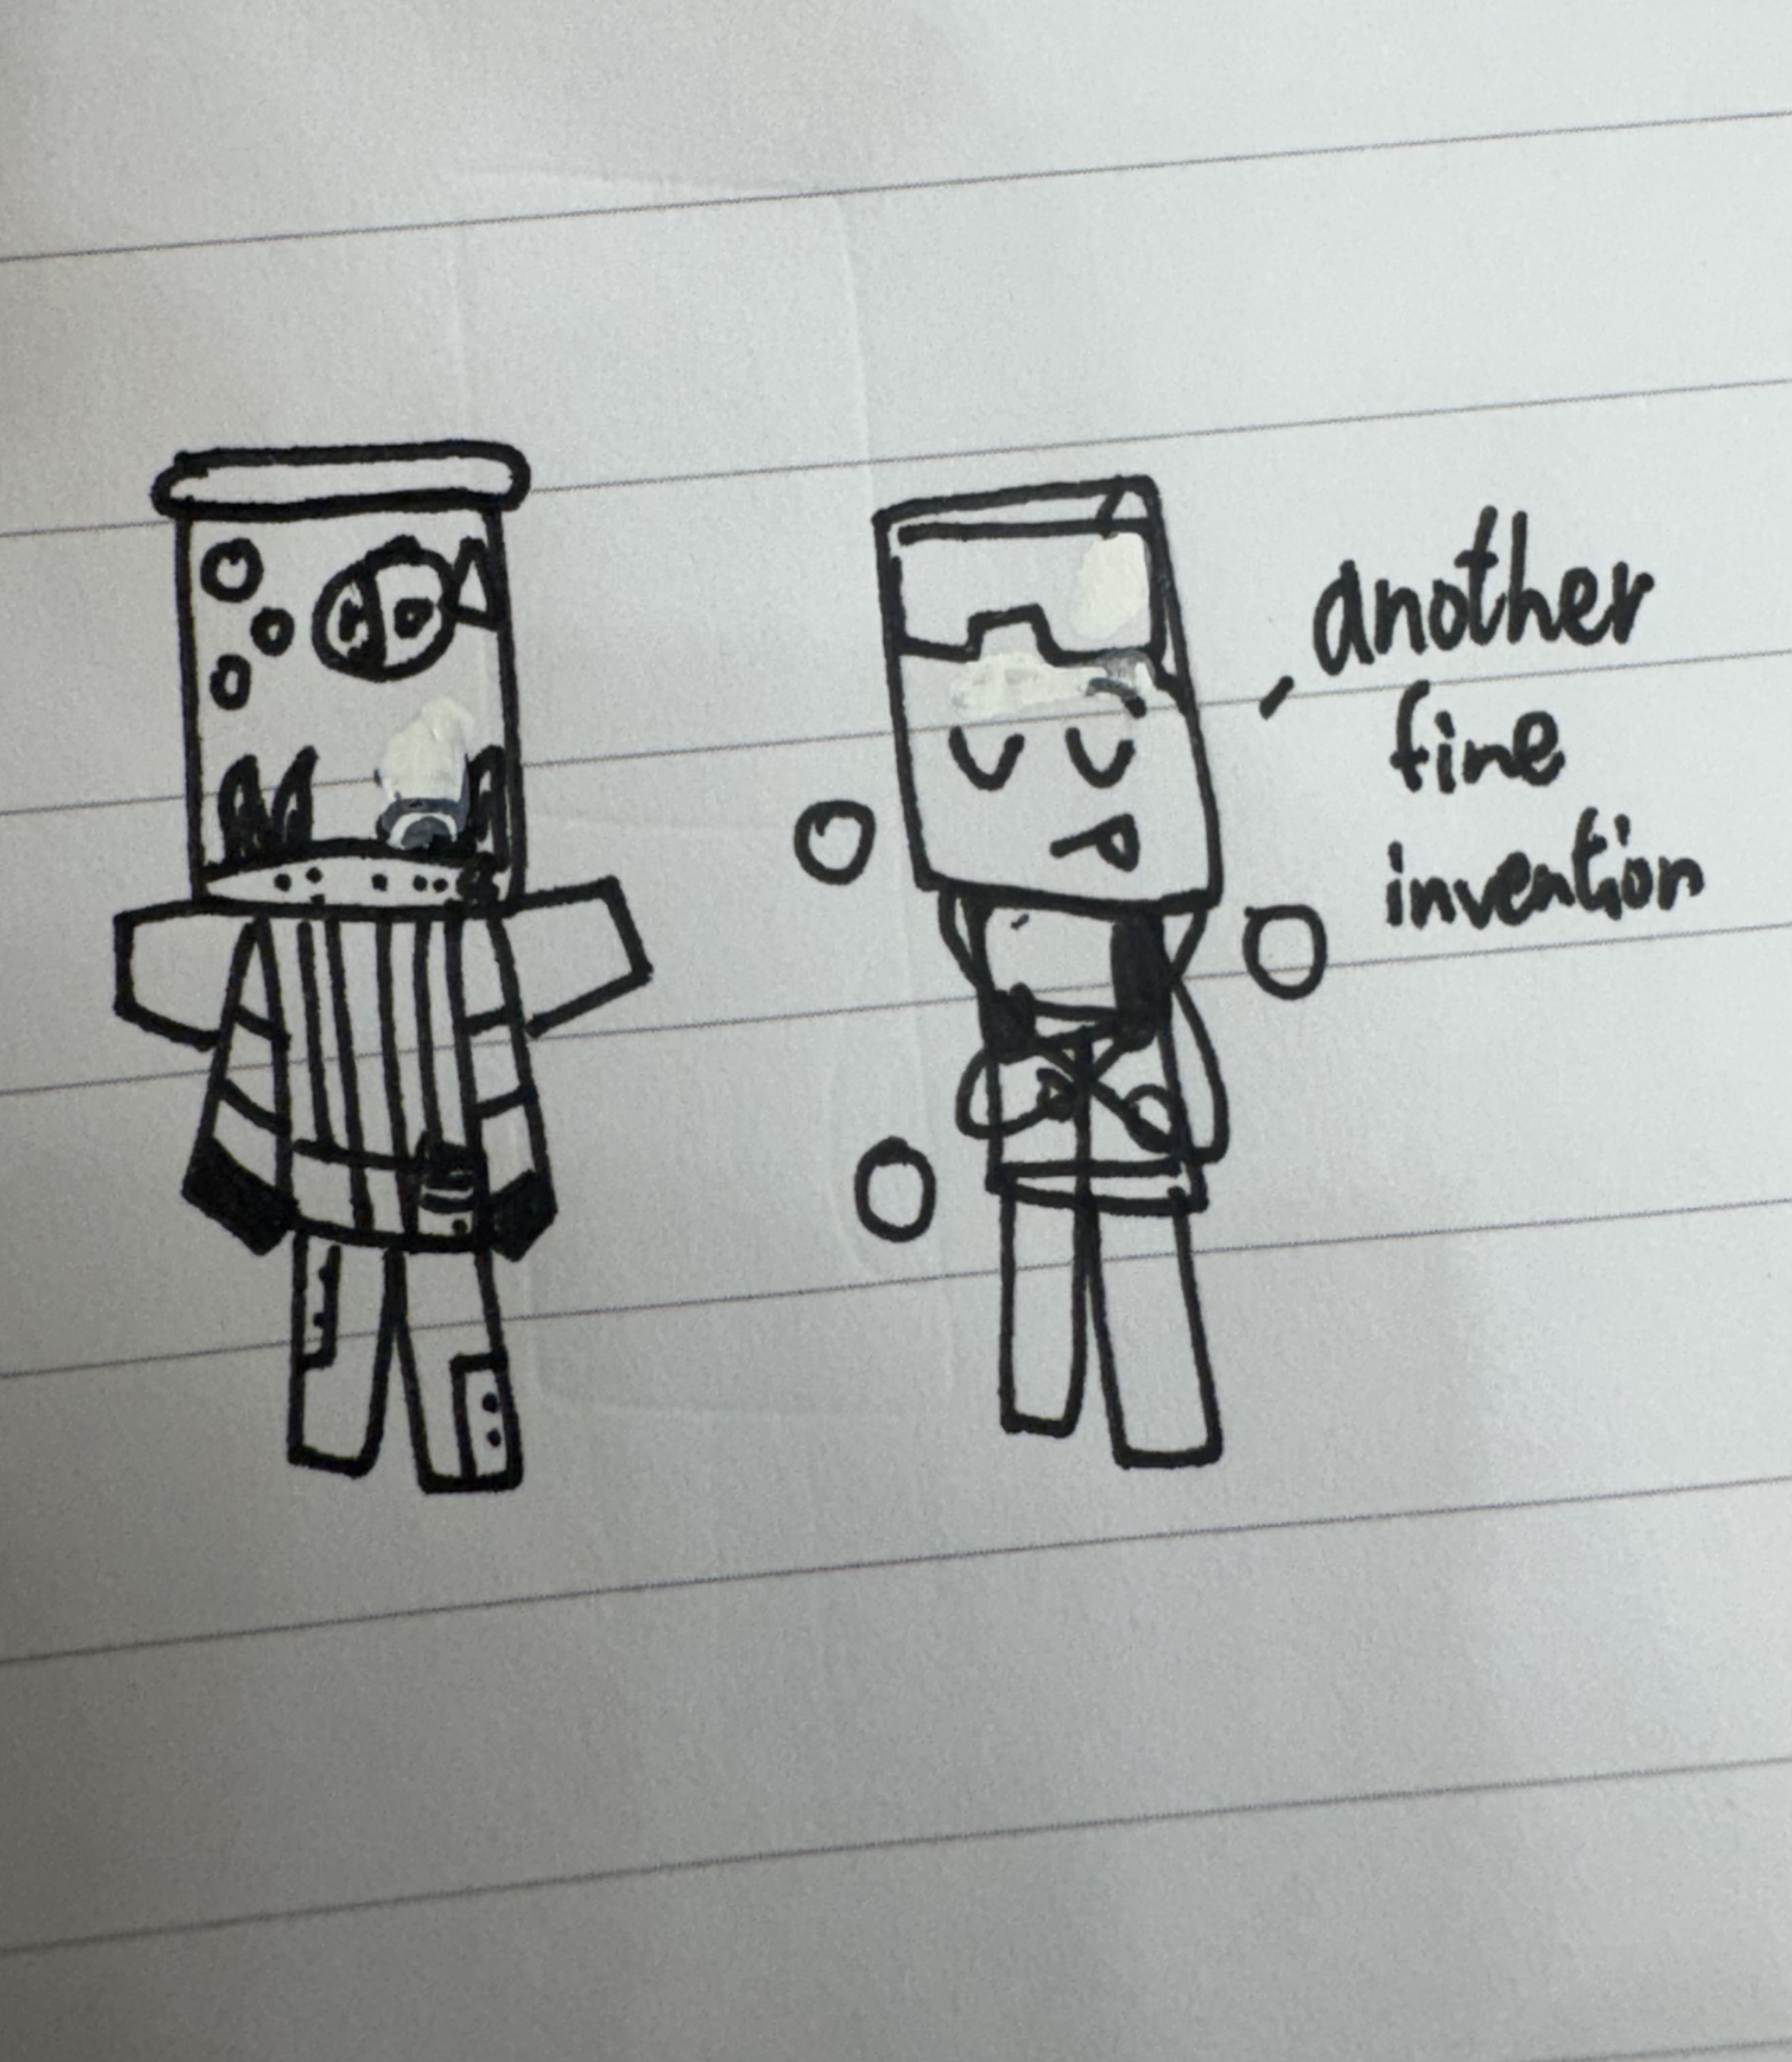 another
fine
invention